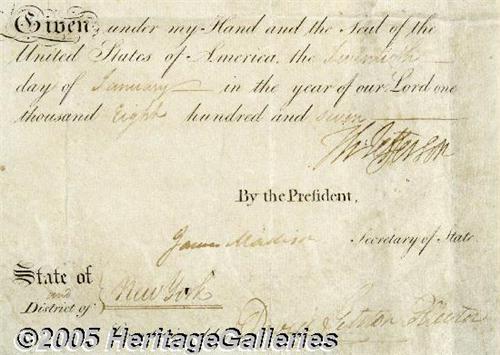 Given, under my Hand and the Seal of the
United States of America, the
day of January in the year of our Lord one
thousand Eight hundred and seven
Th: Jefferson
By the President,
James Madison Secretary of State.
State of
and New York
District of
Collector
©2005 HeritageGalleries